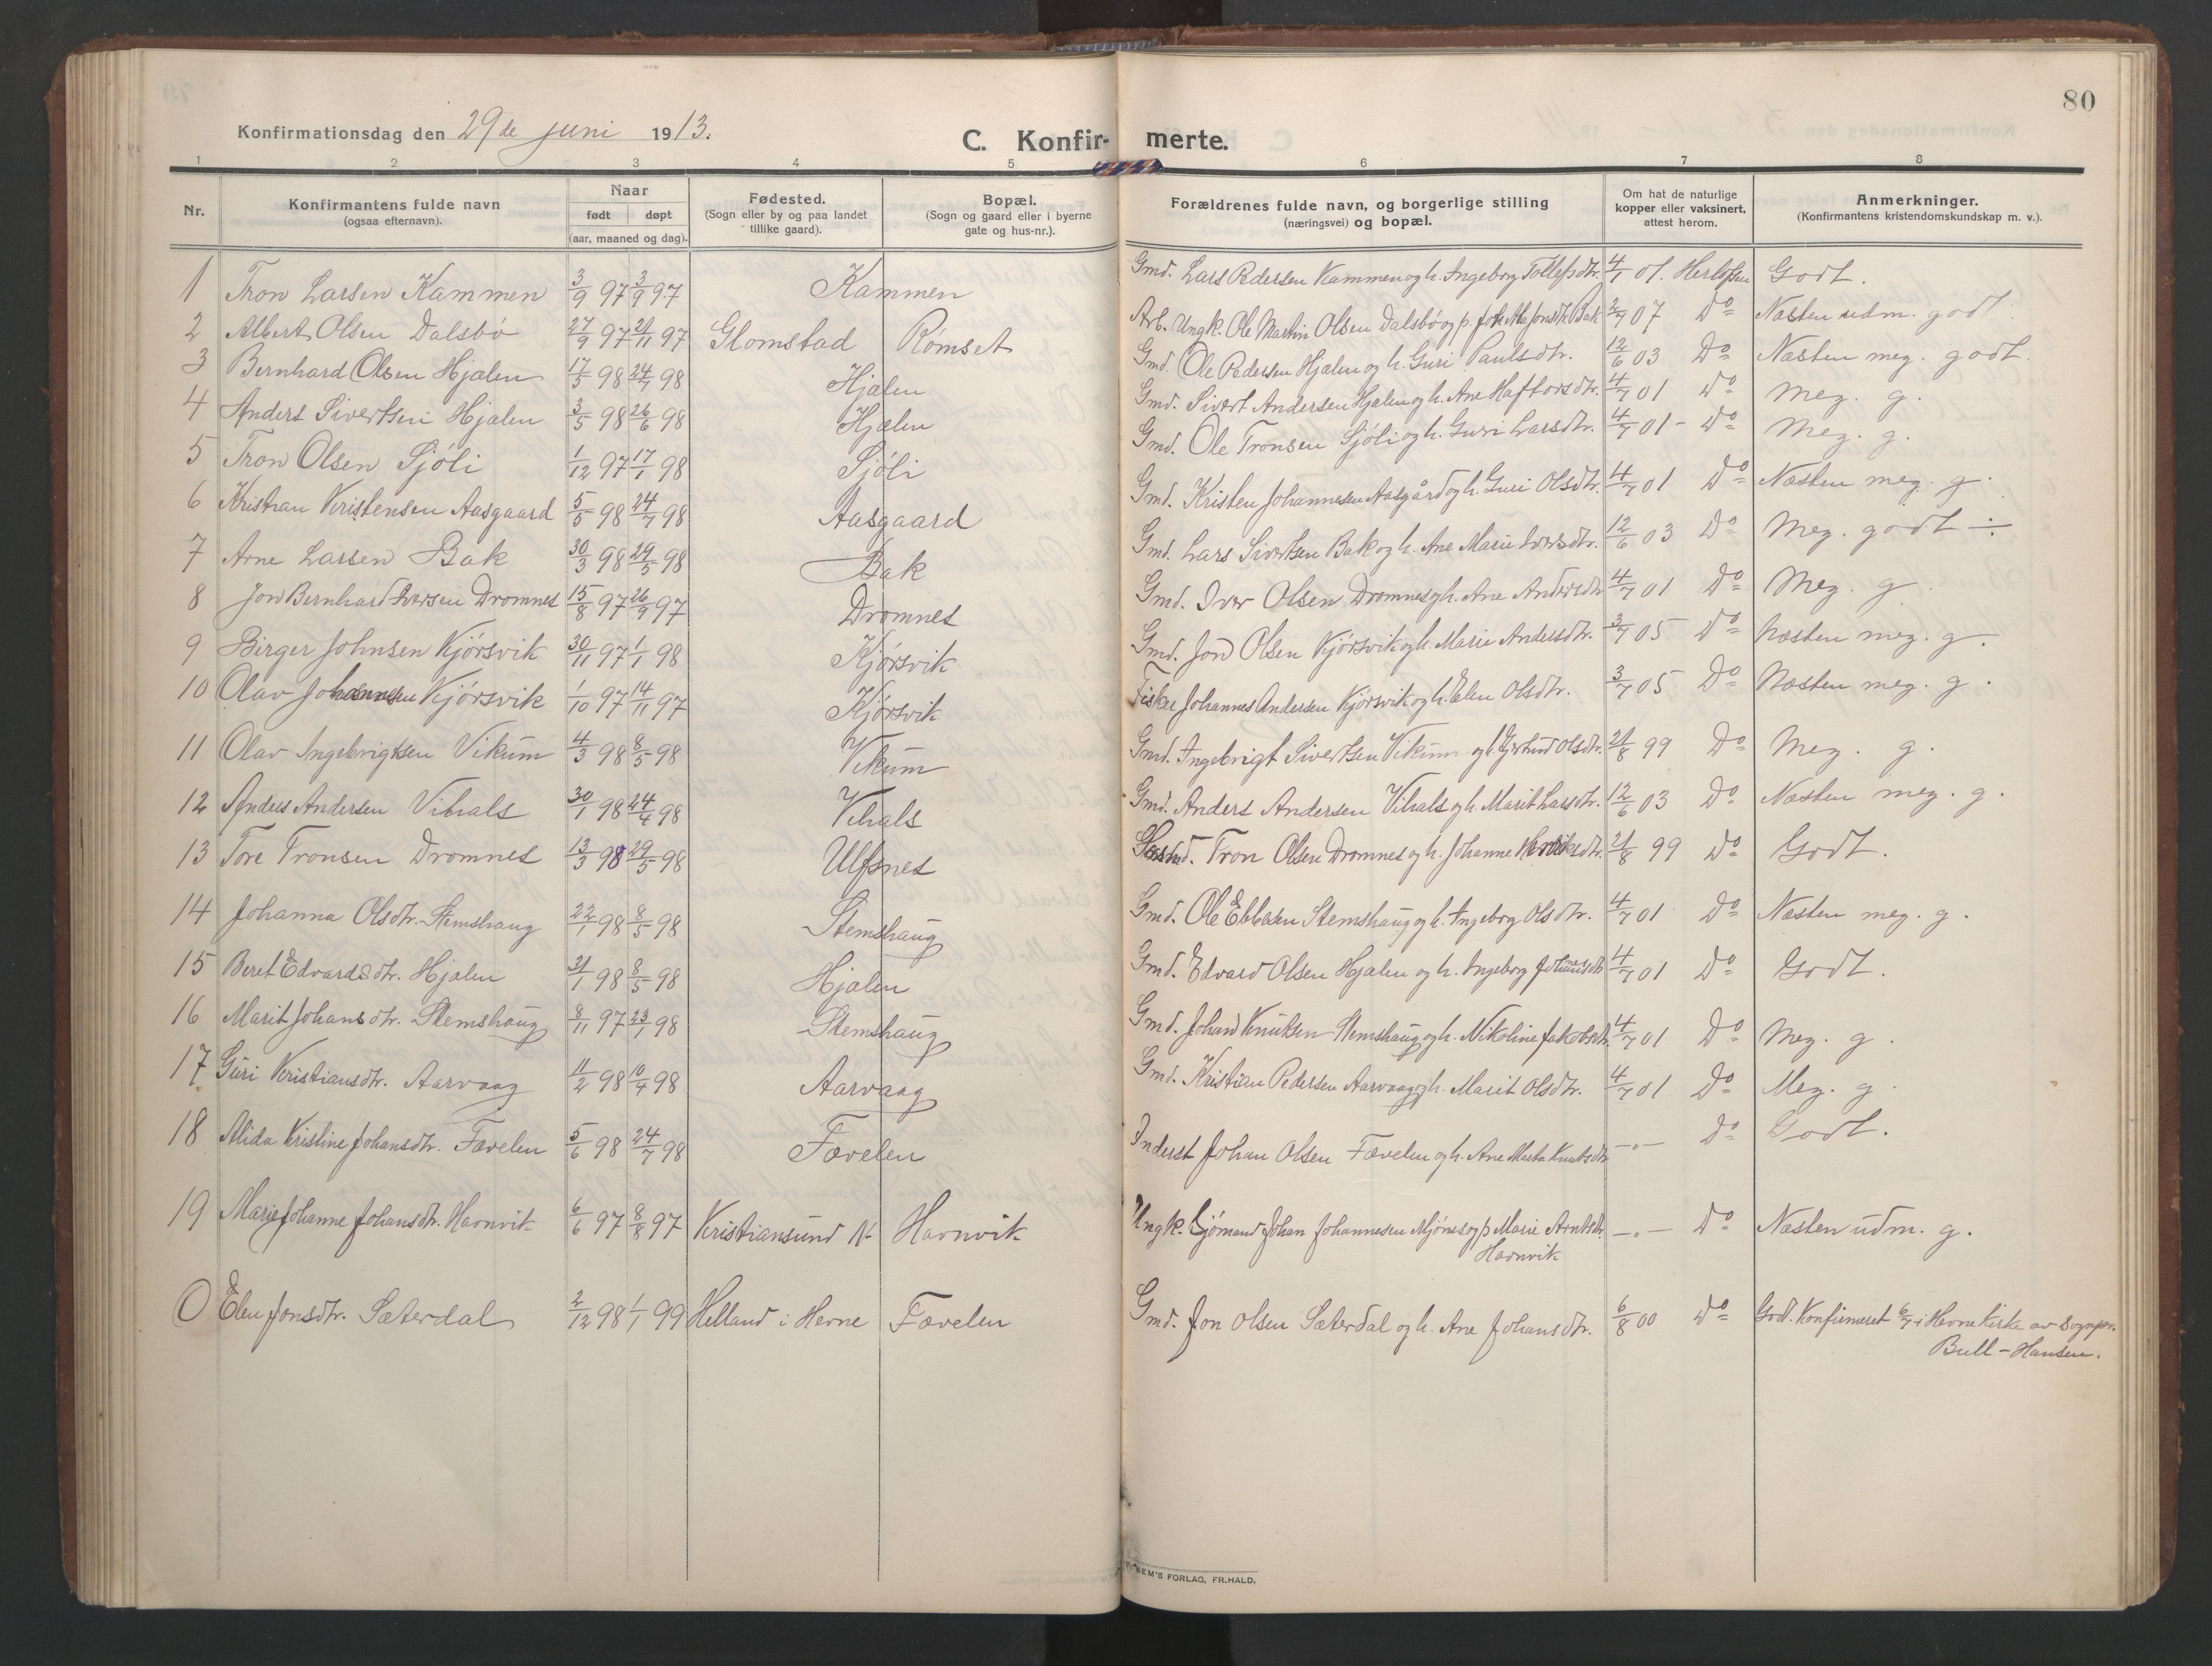 80
Konfirmationsdag den 29de juni 1913.
C. Konfirmerte.
1 2 3 4 5 6 7 8
Nr. Konfirmantens fulde navn (ogsaa efternavn). Naar født døpt (aar, maaned og dag). Fødested. (Sogn eller by og paa landet tillike gaard). Bopæl. (Sogn og gaard eller i byerne gate og hus-nr.). Forældrenes fulde navn, og borgerlige stilling (næringsvei) og bopæl. Om hat de naturlige kopper eller vaksinert, attest herom. Anmerkninger. (Konfirmantens kristendomskundskap m. v.).
1 Tron Larsen Kammen 3/9 97 3/9 97 Kammen Gmd. Lars Pedersen Kammen og h. Ingeborg Tollefsdtr. 4/7 01. Godt.
2 Albert Olsen Dalsbø 27/9 97 21/11 97 Glomstad Rømset Arb. Ungk. Ole Martin Olsen Dalsbø og p. Bak 2/7 07 Do Næsten udm. godt.
3 Bernhard Olsen Hjælen 17/5 98 24/7 98 Hjælen Gmd. Ole Pedersen Hjælen og h. Guri Paulsdtr. 12/6 03 Do Næsten meg. godt.
4 Anders Sivertsen Hjælen 3/5 98 26/6 98 Hjælen Gmd. Sivert Andersen Hjælen og h. Ane Haftorsdtr. 4/7 01 Do Meg. g.
5 Tron Olsen Sjøli 1/12 97 17/1 98 Sjøli Gmd. Ole Tronsen Sjøli og h. Guri Larsdtr. 4/7 01 - Do Meg. g.
6 Kristian Kristensen Aasgaard 5/5 98 24/7 98 Aasgaard Gmd. Kristen Johannesen Aasgård og h. Guri Olsdtr. 4/7 01 Do Næsten meg. g.
7 Arne Larsen Bak 30/3 98 29/5 98 Bak Gmd. Lars Sivertsen Bak og h. Ane Marie Iversdtr. 12/6 03 Do Meg. godt ÷
8 Jon Bernhard Iversen Dromnes 15/8 97 26/9 97 Dromnes Gmd. Iver Olsen Dromnes og h. Ane Andersdtr 4/7 01 Do Meg. g.
9 Birger Johnsen Kjørsvik 30/11 97 1/1 98 Kjørsvik Gmd. Jon Olsen Kjørsvik og h. Marie Andersdtr. 3/7 05 Do Næsten meg. g.
10 Olav Johannesen Kjørsvik 1/10 97 14/11 97 Kjørsvik Fisker Johannes Andersen Kjørsvik og h. Elen Olsdtr. 3/7 05 Do Næsten meg. g.
11 Olav Ingebrigtsen Vikum 4/3 98 8/5 98 Vikum Gmd. Ingebrigt Sivertsen Vikum og h. Gjertrud Olsdtr. 21/8 99 Do Meg. g.
12 Anders Andersen Vihals 30/1 98 24/4 98 Vihals Gmd. Anders Andersen Vihals og h. Marit Larsdtr. 12/6 03 Do Næsten meg. g.
13 Tore Tronsen Dromnes 13/3 98 29/5 98 Ulfsnes Tron Olsen Dromnes og h. Johanne 21/8 99 Do Godt.
14 Johanna Olsdtr. Stemshaug 22/1 98 8/5 98 Stemshaug Gmd. Ole Ebbesen Stemshaug og h. Ingeborg Olsdtr. 4/7 01 Do Næsten meg. g.
15 Beret Edvardsdtr. Hjælen 31/1 98 8/5 98 Hjælen Gmd. Edvard Olsen Hjælen og h. Ingeborg Johannesdtr 4/7 01 Do Godt.
16 Marit Johansdtr. Stemshaug 8/11 97 23/1 98 Stemshaug Gmd. Johan Knutsen Stemshaug og h. Nikoline Jakobsdtr. 4/7 01 Do Meg. g.
17 Guri Kristiansdtr. Aarvaag 11/2 98 10/4 98 Aarvaag Gmd. Kristian Pedersen Aarvaag og h. Marit Olsdtr. 4/7 01 Do Meg. g.
18 Alida Kristine Johansdtr. Fævelen 5/6 98 24/7 98 Fævelen Inderst Johan Olsen Fævelen og h. Ane Marta Knutsdtr —"— Do Godt.
19 Marie Johanne Johansdtr. Havnvik 6/6 97 8/8 97 Kristiansund N. Havnvik Ungk. Sjømand Johan Johannesen Mjønes og p Marie Arntsdtr. Havnvik —"— Do Næsten udm. g.
0 Elen Jonsdtr. Sæterdal 2/12 98 1/1 99 Helland i Hevne Fævelen Gmd. Jon Olsen Sæterdal og h. Ane Johansdtr. 6/8 00 Do Godt. Konfirmeret 6/7 i Hevne kirke av sognepr. Bull-Hansen.
EM'S FORLAG, FR.HALD.